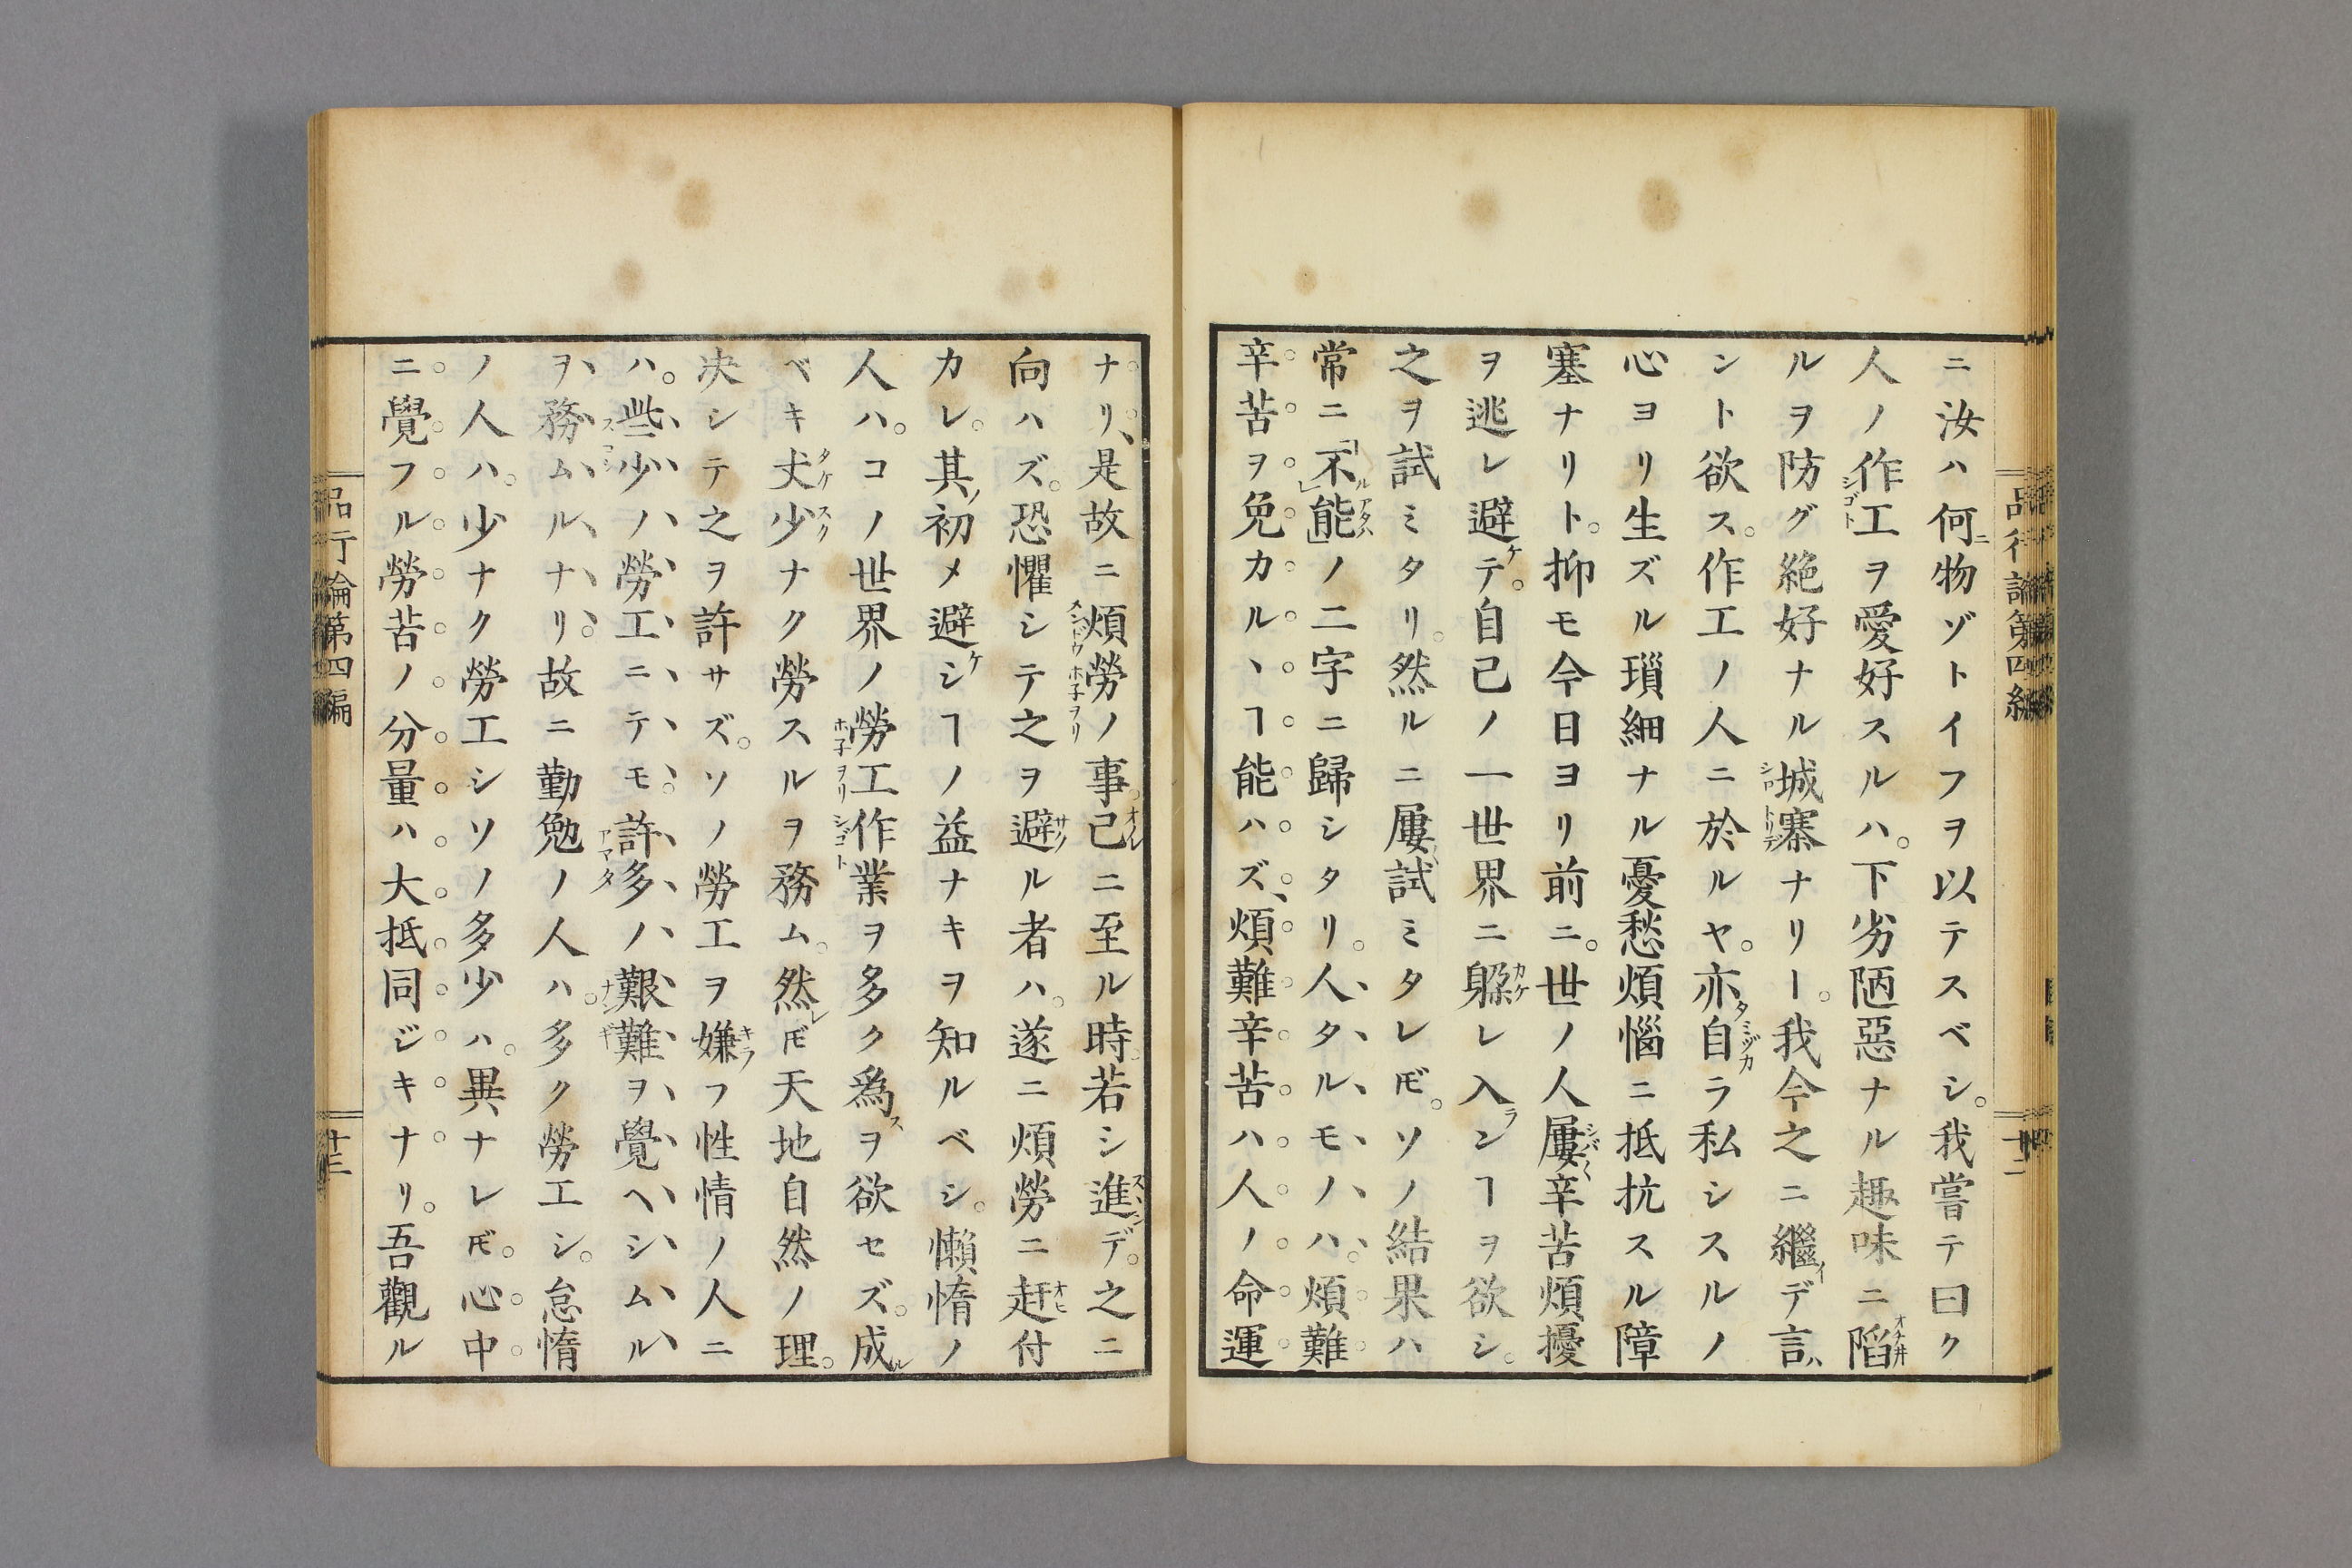 品行論第四編
十二
ニ汝ハ何物ゾトイフヲ以テスベシ。我嘗テ曰ク
人ノ作工ヲ愛好スルハ。下劣陋惡ナル趣味ニ陷
ルヲ防グ絶好ナル城寨ナリー。我今之ニ繼デ言
ント欲ス。作工ノ人ニ於ルヤ。亦自ラ私シスルノ
心ヨリ生ズル瑣細ナル憂愁煩惱ニ抵抗スル障
塞ナリト。抑モ今日ヨリ前ニ。世ノ人屢辛苦煩擾
ヲ逃レ避テ。自己ノ一世界ニ躱レ入ンヿヲ欲シ。
之ヲ試ミタリ。然ルニ屢試ミタレ𪜈。ソノ結果ハ
常ニ「不能」ノ二字ニ歸シタリ。人タルモノハ。煩難
辛苦ヲ免カルヽヿ能ハズ、煩難辛苦ハ人ノ命運
ナリ、是故ニ煩勞ノ事己ニ至ル時若シ進デ。之ニ
向ハズ。恐懼シテ之ヲ避ル者ハ。遂ニ煩勞ニ赶付
カレ。其初メ避シヿノ益ナキヲ知ルベシ。懶惰ノ
人ハ。コノ世界ノ勞工作業ヲ多ク爲ヲ欲セズ。成
ベキ丈少ナク勞スルヲ務ム。然𪜈天地自然ノ理。
决シテ之ヲ許サズ。ソノ勞工ヲ嫌フ性情ノ人ニ
ハ。些少ノ勞工ニテモ。許多ノ艱難ヲ覺ヘシムル
ヲ務ムルナリ。故ニ勤勉ノ人ハ。多ク勞工シ。怠惰
ノ人ハ。少ナク勞工シソノ多少ハ。異ナレ𪜈。心中
ニ覺フル勞苦ノ分量ハ大抵同ジキナリ。吾觀ル
品行論第四編
十三